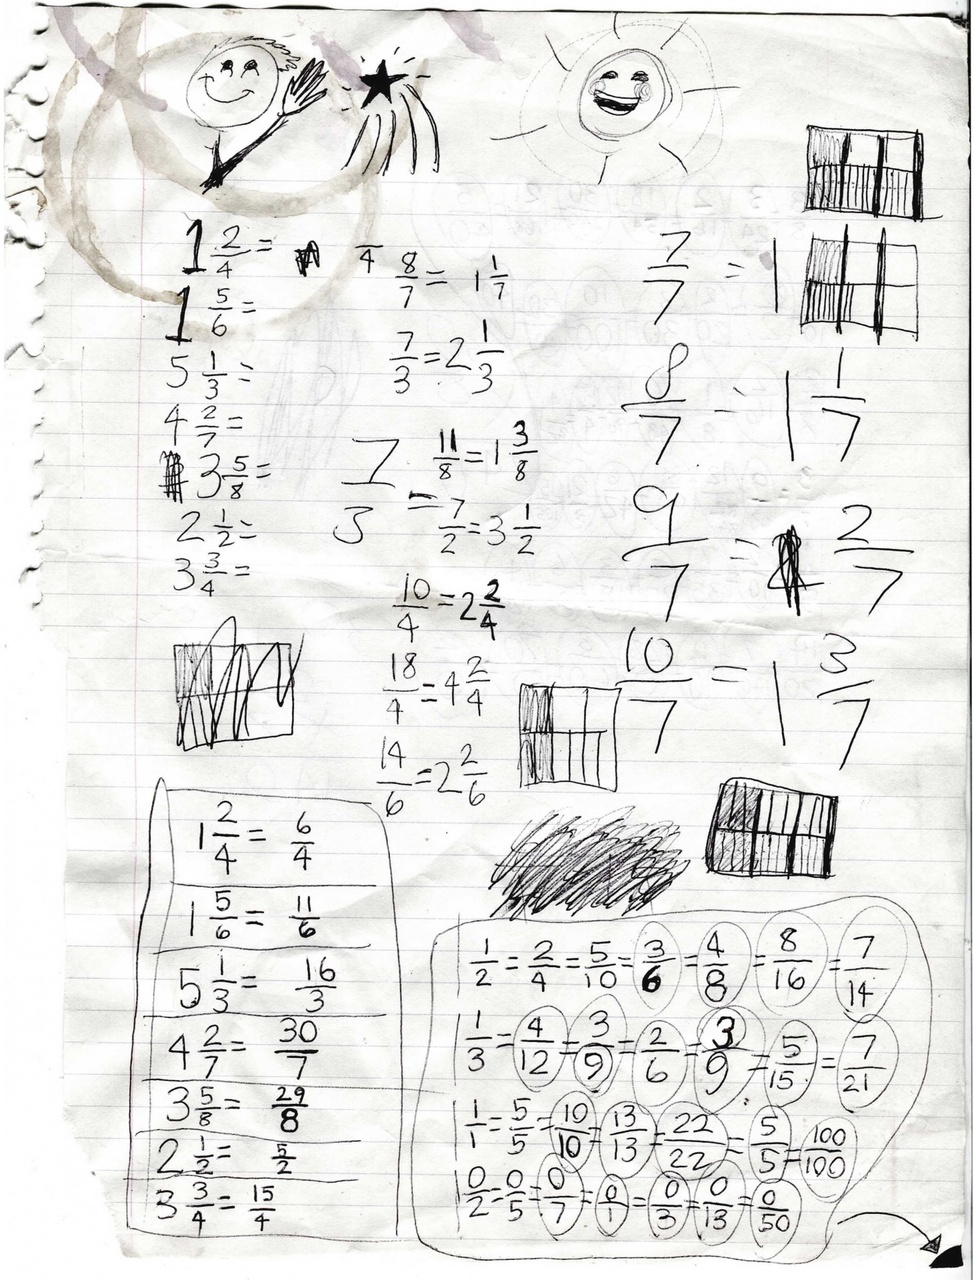 1 2/4 =
1 5/6 =
5 1/3 =
4 2/7 =
3 5/8 =
2 1/2 =
3 3/4 =
4
8/7 = 1 1/7
7/3 = 2 1/3
11/8 = 1 3/8
7/3 =
7/2 = 3 1/2
10/4 = 2 2/4
18/4 = 4 2/4
14/6 = 2 2/6
7/7 = 1
8/7 = 1 1/7
9/7 = 2/7
10/7 = 1 3/7
1 2/4 = 6/4
1 5/6 = 11/6
5 1/3 = 16/3
4 2/7 = 30/7
3 5/8 = 29/8
2 1/2 = 5/2
3 3/4 = 15/4
1/2 = 2/4 = 5/10 = 3/6 = 4/8 = 8/16 = 7/14
1/3 = 4/12 = 3/9 = 2/6 = 3/9 = 5/15 = 7/21
1/1 = 5/5 = 10/10 = 13/13 = 22/22 = 5/5 = 100/100
0/2 = 0/5 = 0/7 = 0/1 = 0/3 = 0/13 = 0/50